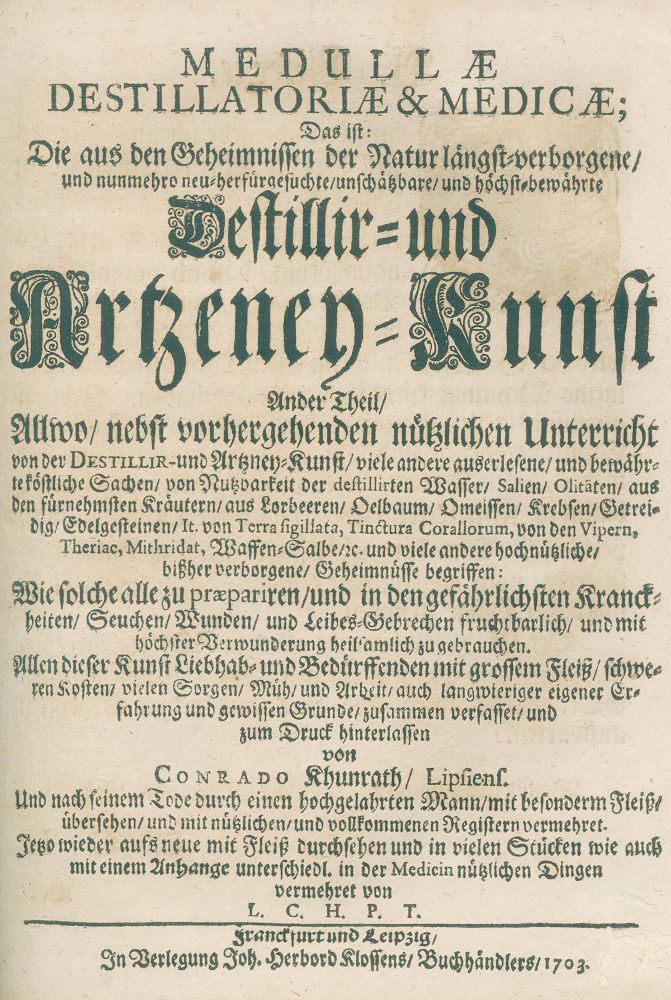 MEDULLÆ
DESTILLATORIÆ & MEDICÆ;
Das ist:
Die aus den Geheimnissen der Natur längst-verborgene/
und nunmehro neu-herfürgesuchte/unschätzbare/ und höchst-bewährte
Destillir- und
Artzeney-Kunst
Ander Theil/
Allwo/ nebst vorhergehenden nützlichen Unterricht
von der DESTILLIR- und Artzney-Kunst/ viele andere auserlesene/ und bewähr-
te köstliche Sachen/ von Nutzbarkeit der destillirten Wasser/ Salien/ Olitäten/ aus
den fürnehmsten Kräutern/ aus Lorbeeren/ Oelbaum/ Omeissen/ Krebsen/ Getrei-
dig/ Edelgesteinen/ It. von Terra sigillata, Tinctura Corallorum, von den Vipern,
Theriac, Mithridat, Waffen-Salbe/ꝛc. und viele andere hochnützliche/
bißher verborgene/ Geheimnüsse begriffen:
Wie solche alle zu præpariren/ und in den gefährlichsten Kranck-
heiten/ Seuchen/ Wunden/ und Leibes-Gebrechen fruchtbarlich/ und mit
höchster Verwunderung heilsamlich zu gebrauchen.
Allen dieser Kunst Liebhab- und Bedürffenden mit grossem Fleiß/ schwe-
ren Kosten/ vielen Sorgen/ Müh/ und Arbeit/ auch langwieriger eigener Er-
fahrung und gewissen Grunde/ zusammen verfasset/ und
zum Druck hinterlassen
von
CONRADO Khunrath/ Lipsiens.
Und nach seinem Tode durch einen hochgelahrten Mann/ mit besonderm Fleiß/
übersehen/ und mit nützlichen/ und vollkommenen Registern vermehret.
Jetzo wieder aufs neue mit Fleiß durchsehen und in vielen Stücken wie auch
mit einem Anhange unterschiedl. in der Medicin nützlichen Dingen
vermehret von
L. C. H. P. T.
Franckfurt und Leipzig/
In Verlegung Joh. Herbord Klossens/ Buchhändlers/ 1703.